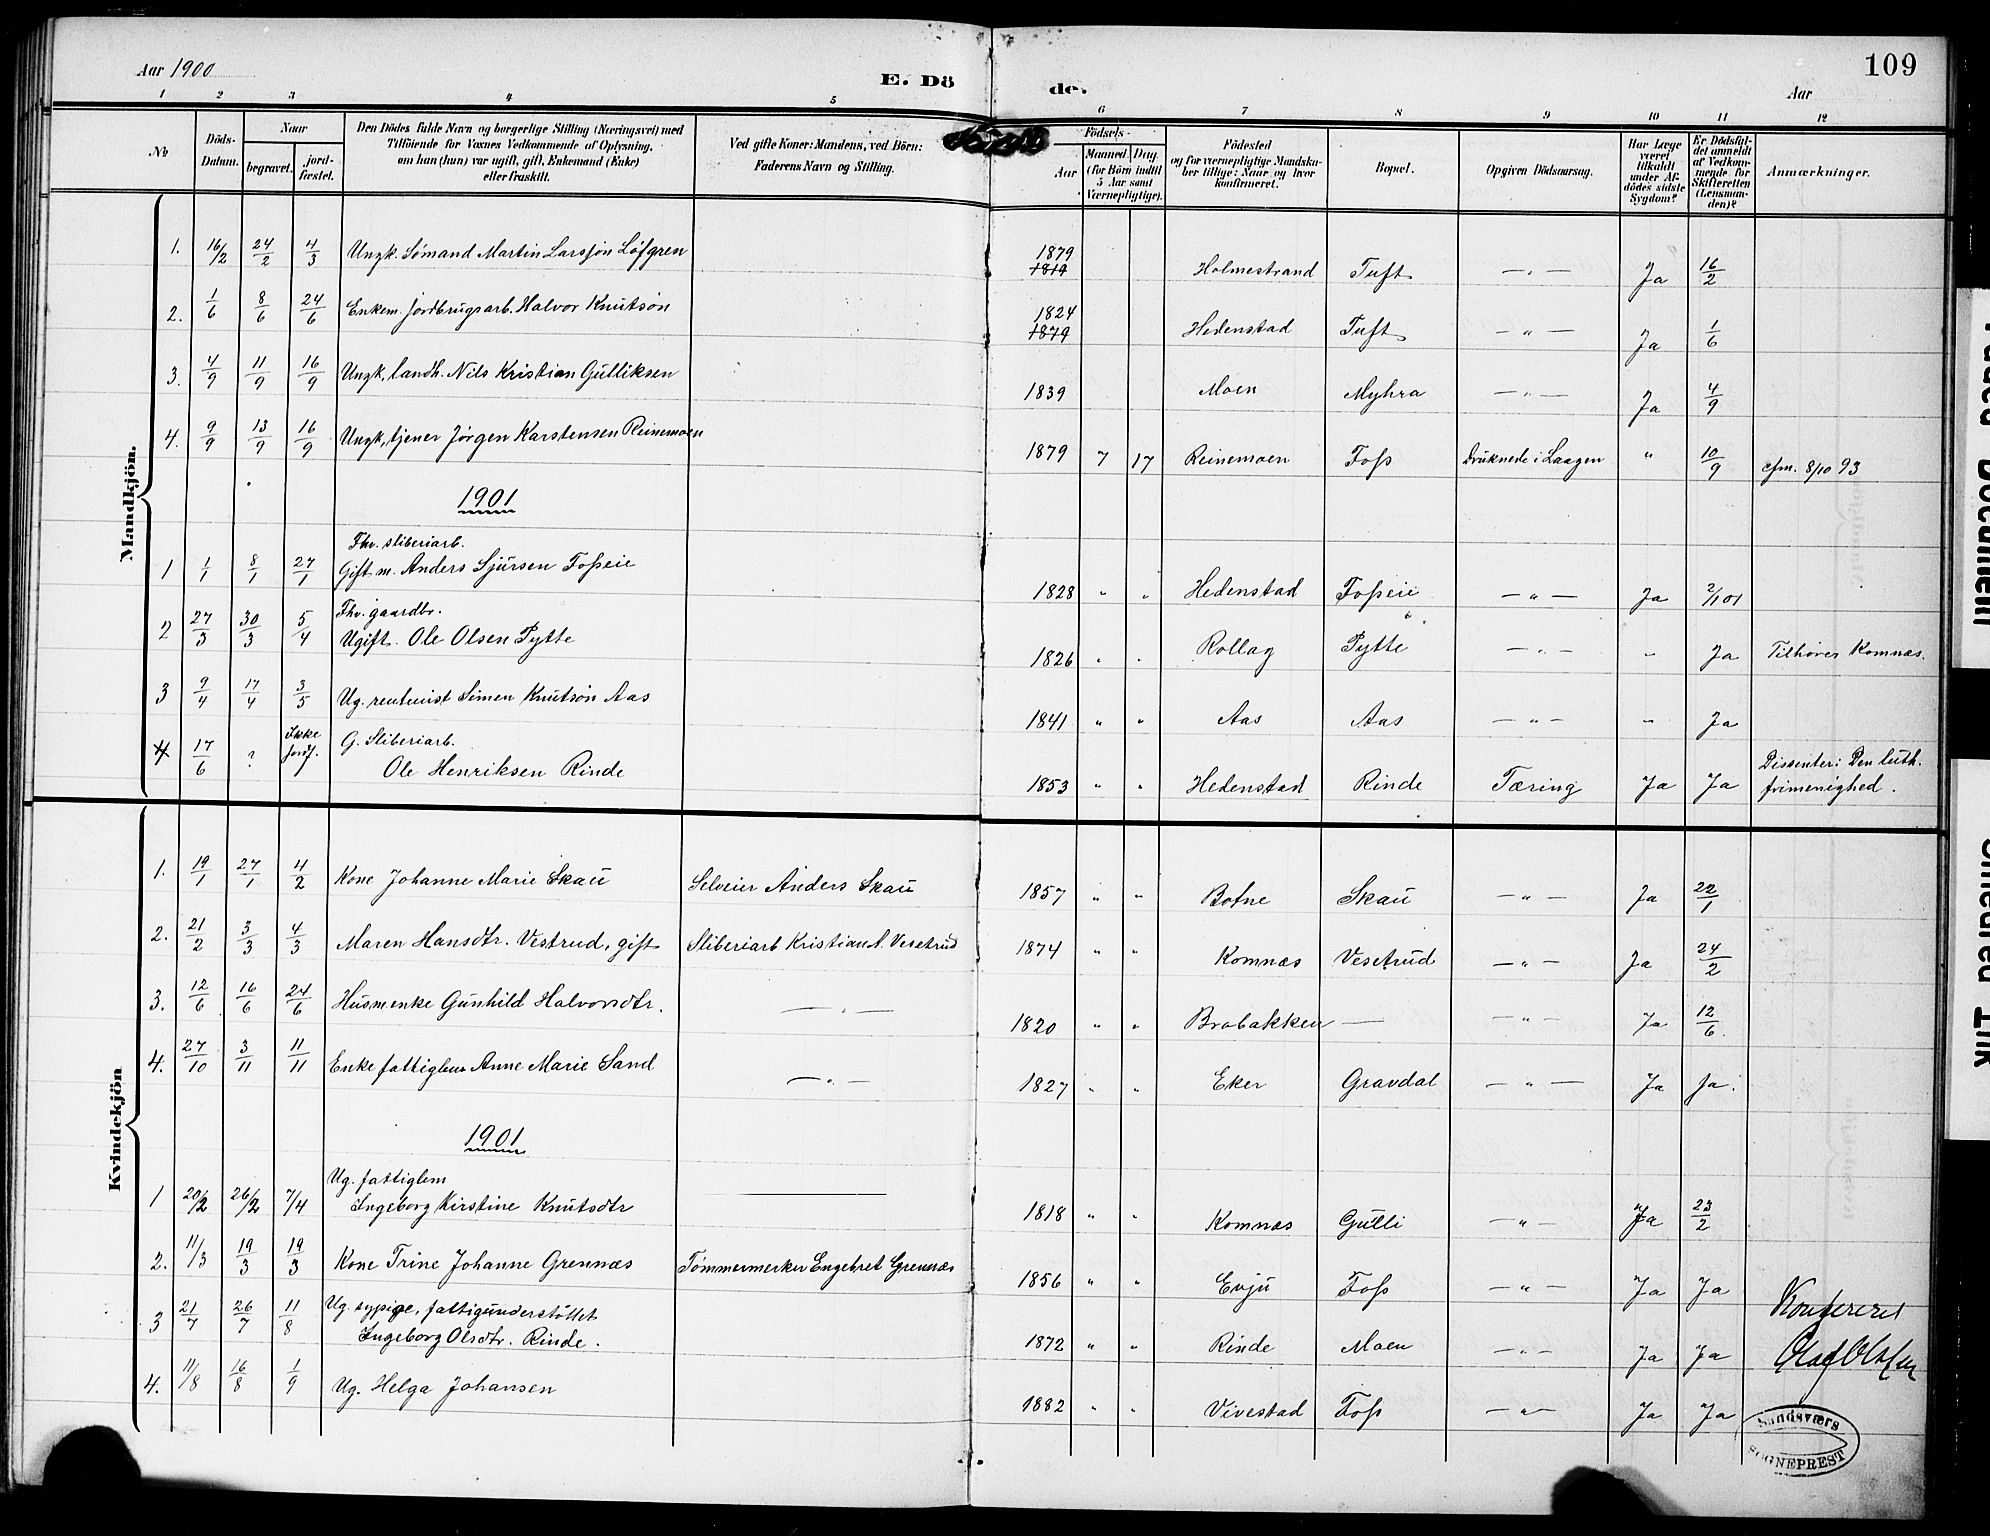 Aar 1900
E. Döde.
Aar
109
1 2 3 4 5 6 7 8 9 10 11 12
No
Döds-Datum.
Naar
begravet.
jord-fæstet.
Den Dödes fulde Navn og borgerlige Stilling (Næringsvei) med
Tilföiende for Voxnes Vedkommende af Oplysning,
om han (hun) var ugift, gift, Enkemand (Enke)
eller fraskilt.
Ved gifte Koner: Mandens, ved Börn:
Faderens Navn og Stilling.
Födsels-
Aar
Maaned. Dag.
(for Börn indtil
5 Aar samt
Værnepligtige).
Födested
og for værnepligtige Mandska-
ber tillige: Naar og hvor
konfirmeret.
Bopæl.
Opgiven Dödsaarsag.
Har Læge
været
tilkaldt
under Af-
dödes sidste
Sygdom?
Er Dödsfal-
det anmeldt
af Vedkom-
mende for
Skifteretten
(Lensman-
den)?
Anmærkninger.
Mandkjön.
1. 16/2 24/2 4/3 Ungk. Sømand Martin Larssøn Løfgren 1879 1819 Holmestrand Tuft — " — Ja 16/2
2. 1/6 8/6 24/6 Enkem. Jordbrugsarb. Halvor Knutsøn 1824 1879 Hedenstad Tuft — " — Ja 1/6
3. 4/9 11/9 16/9 Ungk, landh. Nils Kristian Gulliksen 1839 Moen Myhra — " — Ja 4/9
4. 9/9 13/9 16/9 Ungk, tjener Jørgen Karstensen Reinemoen 1879 7 17 Reinemoen Foss Druknede i Laagen " 10/9 cfm. 8/10 93
1901
Fhv. sliberiarb.
1 1/1 8/1 27/1 Gift m. Anders Sjursen Fosseie 1828 " " Hedenstad Fosseie — " — Ja 2/1 01
Fhv. gaardbr.
2 27/3 30/3 5/4 Ugift. Ole Olsen Pytte 1826 " " Rollag Pytte — " — " Ja Tilhører Komnæs.
3 9/4 17/4 3/5 Ug. rentenist Simen Knutsøn Aas 1841 " " Aas Aas — " — " Ja
4 17/6 ? Ikke jordf. G. Sliberiarb.
Ole Henriksen Rinde 1853 " " Hedenstad Rinde Tæring Ja Ja Dissenter: Den luth. frimenighed.
Kvindekjön
1. 19/1 27/1 4/2 Kone Johanne Marie Skau Selveier Anders Skau 1857 " " Botne Skau — " — Ja 22/1
2. 21/2 3/3 4/3 Maren Hansdtr. Vestrud, gift Sliberiarb Kristian A. Vesetrud 1874 " " Komnæs Vesetrud — " — Ja 24/2
3. 12/6 16/6 24/6 Husmenke Gunhild Halvorsdtr. — " — 1820 " " Brobakken — — " — Ja 12/6
4. 27/10 3/11 11/11 Enke fattiglem Anne Marie Sand — " — 1827 " " Eker Gravdal — " — Ja Ja.
1901
Ug. fattiglem
1 20/2 26/2 7/4 Ingeborg Kirstine Knutsdtr — 1818 " " Komnæs Gulli — " — Ja 23/2
2. 11/3 19/3 19/3 Kone Trine Johanne Grennæs Tømmermerker Engebret Grennæs 1856 " " Evju Foss — " — Ja Ja
3 21/7 26/7 11/8 Ug. sypige, fattigunderstøttet
Ingeborg Olsdtr. Rinde. 1872 " " Rinde Moen — " — Ja Ja
4. 11/8 16/8 1/9 Ug. Helga Johansen 1882 " " Vivestad Foss — " — Ja Ja
Konfereret
Olaf Olafsen
Sandsværs
SOGNEPREST
Faded Document
Smeared Ink